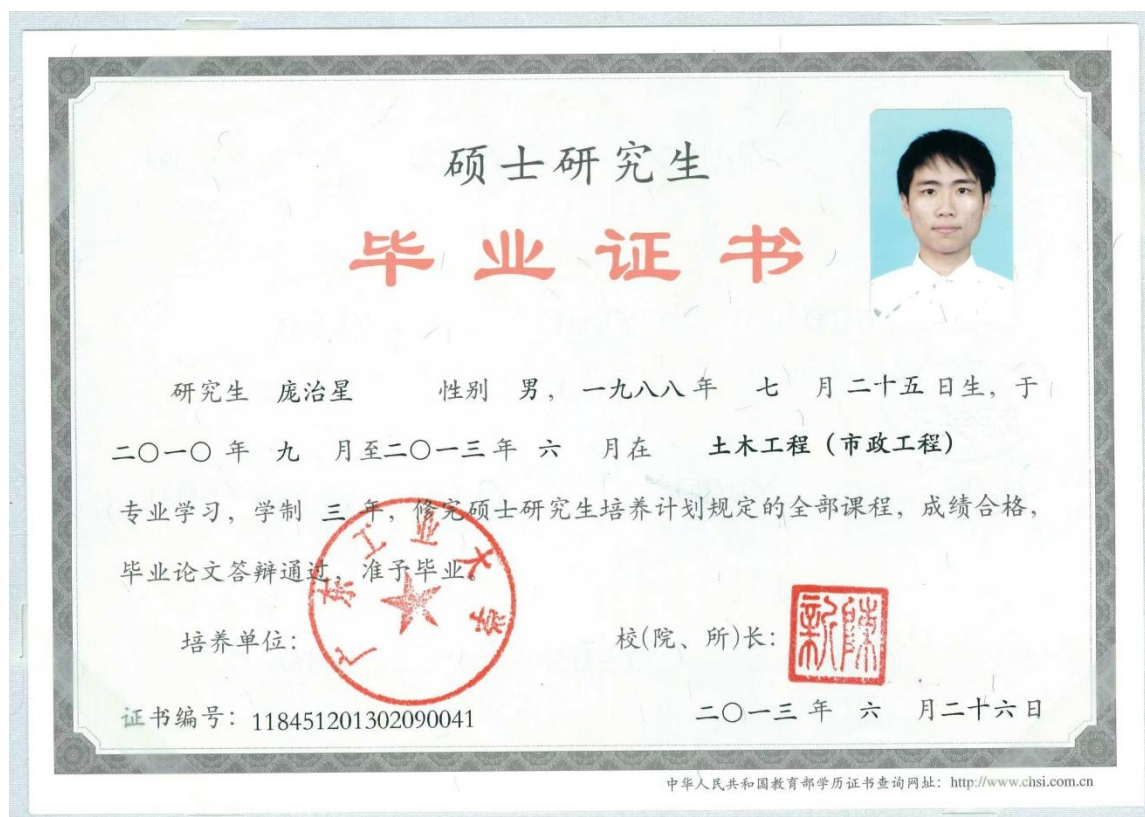 硕士研究生
毕业证书
研究生 庞治星 性别 男，一九八八年 七 月二十五日生，于
二〇一〇年 九 月至二〇一三年 六 月在 土木工程（市政工程）
专业学习，学制 三 年，修完硕士研究生培养计划规定的全部课程，成绩合格，
毕业论文答辩通过，准予毕业。
广东工业大学
培养单位：
校(院、所)长：
陈新
证书编号：118451201302090041
二〇一三年 六 月二十六日
中华人民共和国教育部学历证书查询网址：http://www.chsi.com.cn